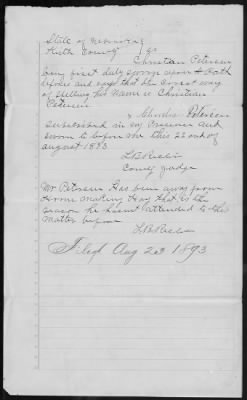 State of Nebraska
Keith County } ss
Christian Petersen
being first duly sworn upon Oath
deposes and says that the correct way
of spelling his name is Christian
Petersen
Christ Petersen
Subscribed in my Presence and
sworn to before me this 22 day of
august 1893
County judge
Mr Petersen has been away from
Home making Hay that is the
reason he hasnt attended to this
matter before
Filed Aug 23 1893